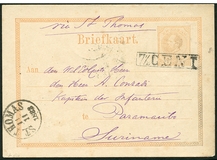 via St Thomas
Briefkaart.
7½ CENT
Aan den Wel Edelgestr. Heer
den Heer A. Conradi
Kapitein der Infanterie
te Paramaribo
Suriname
ST. THOMAS